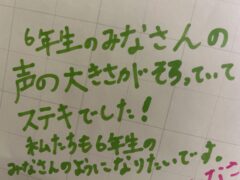 6年生のみなさんの
声の大きさがそろっていて
ステキでした!
私たちも6年生の
みなさんのようになりたいです。